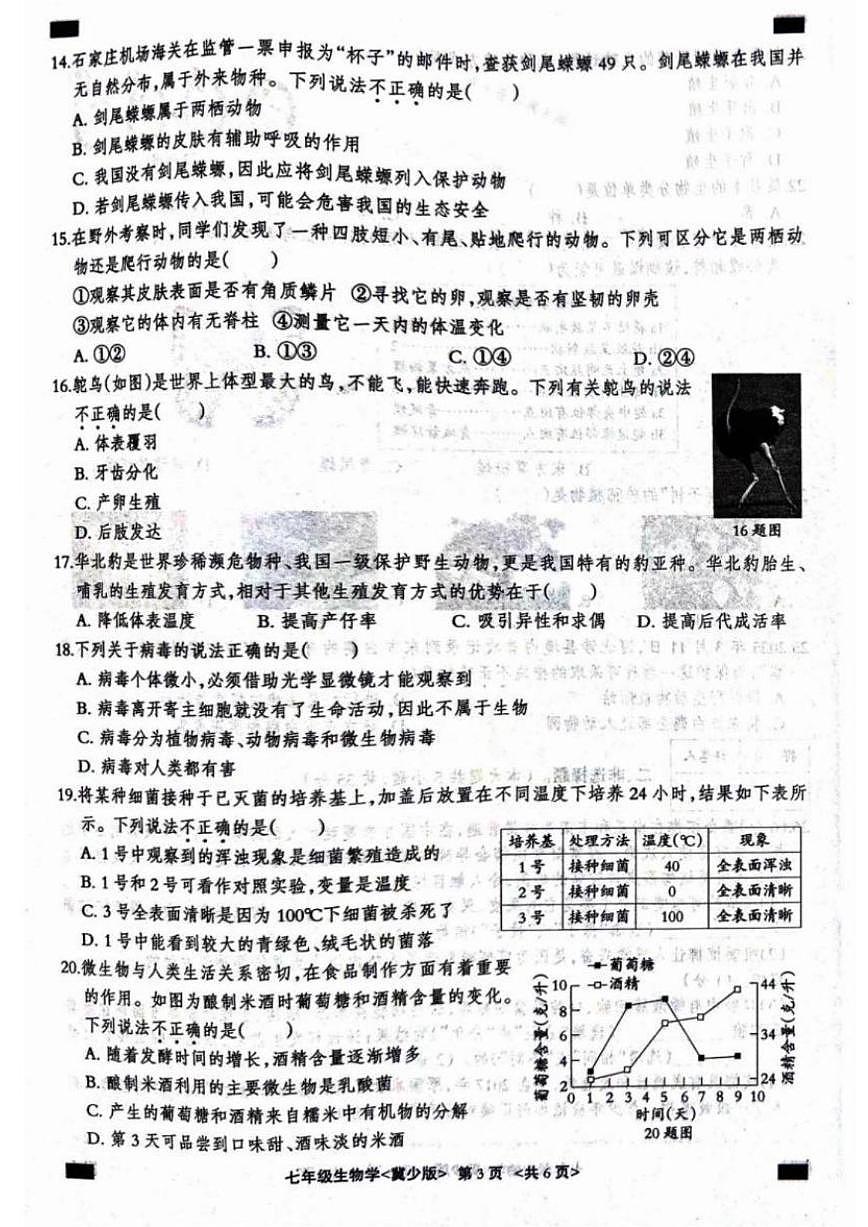 14.石家庄机场海关在监管一票申报为“杯子”的邮件时,查获剑尾蝾螈49只。剑尾蝾螈在我国并
无自然分布,属于外来物种。下列说法不正确的是(　　)
A. 剑尾蝾螈属于两栖动物
B. 剑尾蝾螈的皮肤有辅助呼吸的作用
C. 我国没有剑尾蝾螈,因此应将剑尾蝾螈列入保护动物
D. 若剑尾蝾螈传入我国,可能会危害我国的生态安全
15.在野外考察时,同学们发现了一种四肢短小、有尾、贴地爬行的动物。下列可区分它是两栖动
物还是爬行动物的是(　　)
①观察其皮肤表面是否有角质鳞片　②寻找它的卵,观察是否有坚韧的卵壳
③观察它的体内有无脊柱　④测量它一天内的体温变化
A. ①②　B. ①③　C. ①④　D. ②④
16.鸵鸟(如图)是世界上体型最大的鸟,不能飞,能快速奔跑。下列有关鸵鸟的说法
不正确的是(　　)
A. 体表覆羽
B. 牙齿分化
C. 产卵生殖
D. 后肢发达
16题图
17.华北豹是世界珍稀濒危物种、我国一级保护野生动物,更是我国特有的豹亚种。华北豹胎生、
哺乳的生殖发育方式,相对于其他生殖发育方式的优势在于(　　)
A. 降低体表温度　B. 提高产仔率　C. 吸引异性和求偶　D. 提高后代成活率
18.下列关于病毒的说法正确的是(　　)
A. 病毒个体微小,必须借助光学显微镜才能观察到
B. 病毒离开寄主细胞就没有了生命活动,因此不属于生物
C. 病毒分为植物病毒、动物病毒和微生物病毒
D. 病毒对人类都有害
19.将某种细菌接种于已灭菌的培养基上,加盖后放置在不同温度下培养24小时,结果如下表所
示。下列说法不正确的是(　　)
A. 1号中观察到的浑浊现象是细菌繁殖造成的
B. 1号和2号可看作对照实验,变量是温度
C. 3号全表面清晰是因为100℃下细菌被杀死了
D. 1号中能看到较大的青绿色、绒毛状的菌落
培养基　处理方法　温度(℃)　现象
1号　接种细菌　40　全表面浑浊
2号　接种细菌　0　全表面清晰
3号　接种细菌　100　全表面清晰
20.微生物与人类生活关系密切,在食品制作方面有着重要
的作用。如图为酿制米酒时葡萄糖和酒精含量的变化。
下列说法不正确的是(　　)
A. 随着发酵时间的增长,酒精含量逐渐增多
B. 酿制米酒利用的主要微生物是乳酸菌
C. 产生的葡萄糖和酒精来自糯米中有机物的分解
D. 第3天可品尝到口味甜、酒味淡的米酒
葡萄糖
酒精
葡萄糖含量(克/升)
10
8
6
4
2
44
34
24
酒精含量(克/升)
0 1 2 3 4 5 6 7 8 9 10
时间(天)
20题图
七年级生物学<冀少版>　第3页　<共6页>